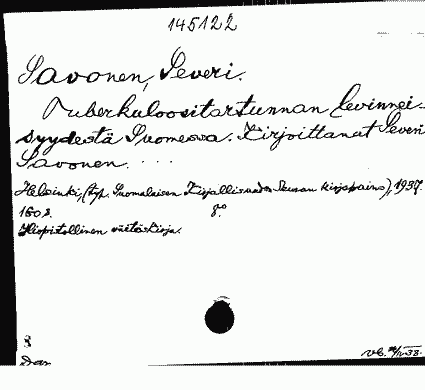 145122
Savonen, Severi.
Tuberkuloositartunnan levinnei-
syydestä Suomessa. Kirjoittanut Severi
Savonen. ...
Helsinki, (typ. Suomalaisen Kirjallisuuden Seuran kirjapaino), 1937.
160 s. 8:o
Yliopistollinen väitöskirja.